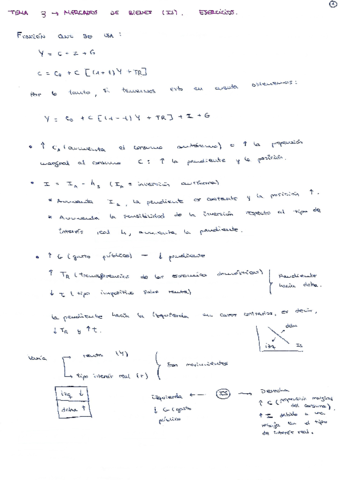 TEMA 3 → MERCADOS DE BIENES (IS). EJERCICIOS.
FUNCIÓN QUE SE USA:
Y = C + I + G
C = C₀ + C [(1-t)Y + TR]
Por lo tanto, si tenemos esto en cuenta obtenemos:
Y = C₀ + C [(1-t)Y + TR] + I + G
• ↑ C₀ (aumenta el consumo autónomo) o ↑ la propensión
marginal al consumo C: ↑ la pendiente y la posición.
• I = I₀ - h₂ (I₀ = inversión autónoma)
* Aumenta I₀, la pendiente es constante y la posición ↑.
* Aumenta la sensibilidad de la inversión respecto al tipo de
interés real h, aumenta la pendiente.
• ↑ G (gasto público) → ↓ pendiente
↑ TR (transferencias de los
↓ t (tipo impositivo sobre renta)
Pendiente
hacia dcha.
la pendiente hacia la izquierda en caso contrario, es decir,
↓ TR y ↑ t.
dcha
izq
IS
Varía
renta (Y)
tipo interés real (r)
Son movimientos
izq ↓
dcha ↑
izquierda ← IS → Derecha
↓ G (gasto
público)
↑ C (propensión marginal
del consumo)
↑ I debido a una
en el tipo
de interés real.